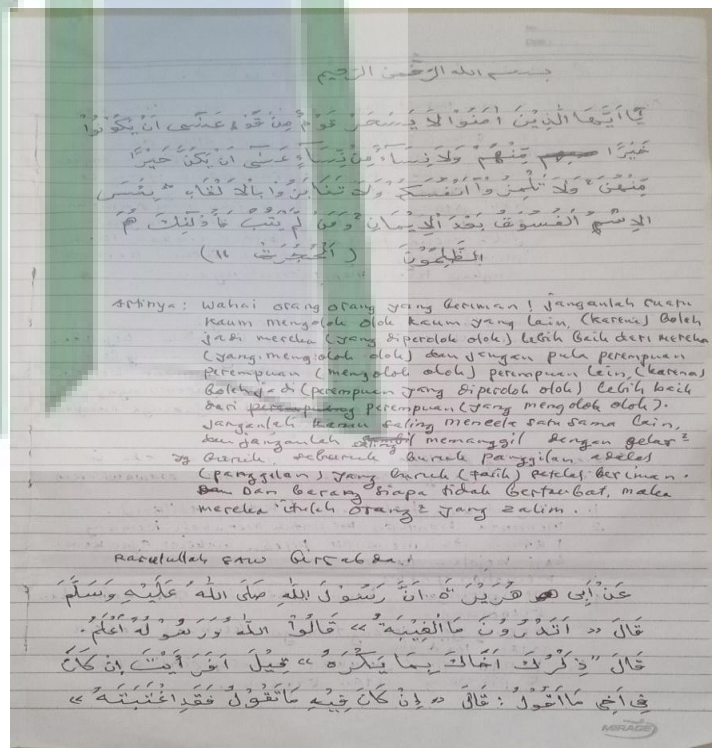 بسم الله الرحمن الرحيم
يٰااَيُّهَا الَّذِيْنَ اٰمَنُوْا لَا يَسْخَرْ قَوْمٌ مِنْ قَوْمٍ عَسٰى اَنْ يَكُوْنُوْا
خَيْرًا مِنْهُمْ وَلَا نِسَاءٌ مِنْ نِسَاءٍ عَسٰى اَنْ يَكُنَّ خَيْرًا
مِنْهُنَّ وَلَا تَلْمِزُوْا اَنْفُسَكُمْ وَلَا تَنَابَزُوْا بِالْاَلْقَابِ بِئْسَ
الِاسْمُ الْفُسُوْقُ بَعْدَ الْاِيْمَانِ وَمَنْ لَمْ يَتُبْ فَاُولٰئِكَ هُمُ
الظّٰلِمُوْنَ ( الحُجُرٰت ١١ )
Artinya : Wahai orang orang yang beriman ! janganlah suatu
kaum mengolok olok kaum yang lain, (karena) boleh
jadi mereka (yang diperolok olok) lebih baik dari mereka
(yang mengolok olok) dan jangan pula perempuan
perempuan (mengolok olok) perempuan lain, (karena)
boleh jadi (perempuan yang diperolok olok) lebih baik
dari perempuan (yang mengolok olok).
janganlah kamu saling mencela satu sama lain,
dan janganlah saling memanggil dengan gelar²
yg buruk, seburuk buruk panggilan adalah
(panggilan) yang buruk (fasik) setelah beriman.
Dan barang siapa tidak bertaubat, maka
mereka itulah orang² yang zalim.
Rasulullah SAW Bersabda :
عَنْ أَبِى هُرَيْرَةَ أَنَّ رَسُوْلَ اللهِ صَلَّى اللهُ عَلَيْهِ وَسَلَّمَ
قَالَ « اَتَدْرُوْنَ مَا الْغِيْبَةُ » قَالُوْا اللهُ وَرَسُوْلُهُ أَعْلَمُ.
قَالَ "ذِكْرُكَ أَخَاكَ بِمَا يَكْرَهُ » قِيْلَ اَفَرَأَيْتَ اِنْ كَانَ
فِى أَخِى مَا أَقُوْلُ : قَالَ « اِنْ كَانَ فِيْهِ مَا تَقُوْلُ فَقَدِ اغْتَبْتَهُ »
MIRAGE